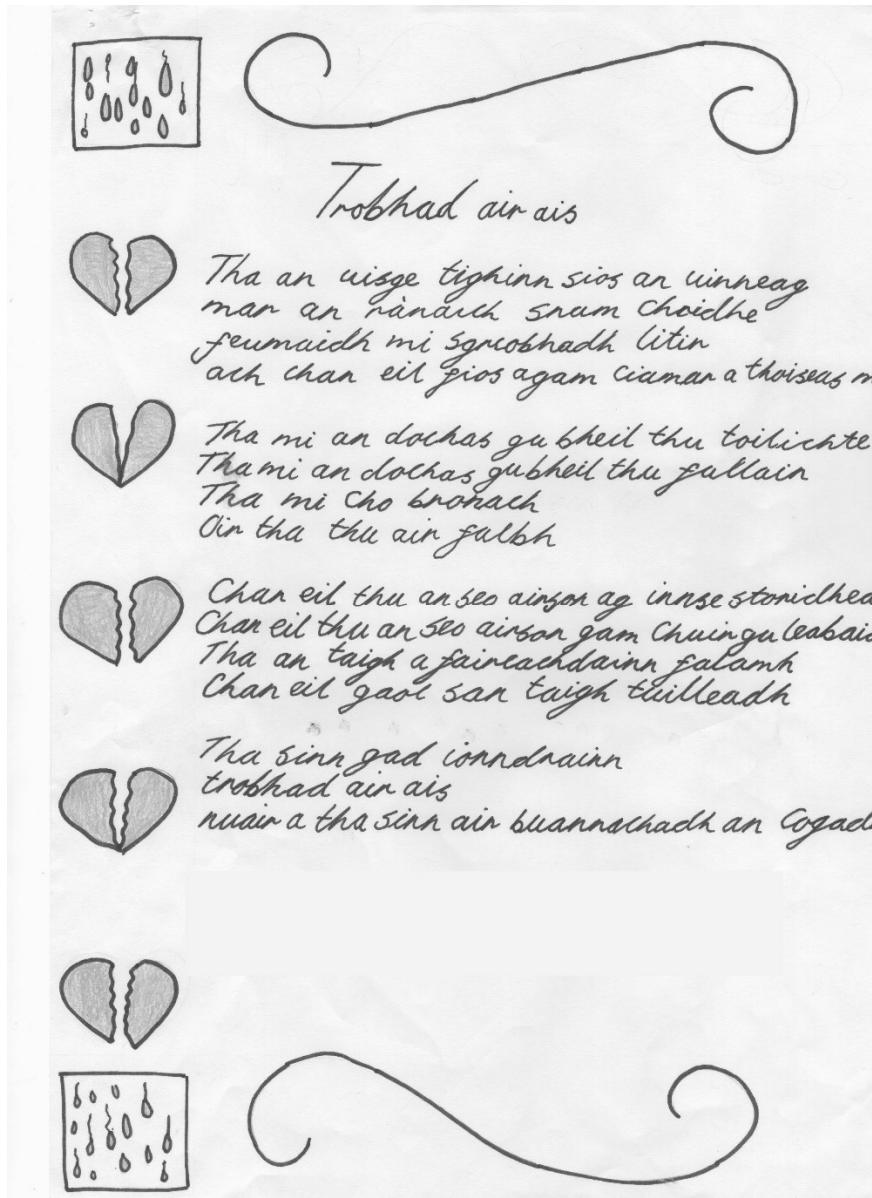 Trobhad air ais
Tha an uisge tighinn sios an uinneag
mar an rànaich snam choidhe
feumaidh mi sgriobhadh litir
ach chan eil fios agam ciamar a thoiseas m
Tha mi an dochas gu bheil thu toilichte
Tha mi an dochas gu bheil thu fallain
Tha mi cho bronach
Oir tha thu air falbh
Chan eil thu an seo airson ag innse storidhea
Chan eil thu an seo airson gam chuir gu leabaid
Tha an taigh a faireachdainn falamh
Chan eil gaol san taigh tuilleadh
Tha sinn gad ionndrainn
trobhad air ais
nuair a tha sinn air buannachadh an cogadh